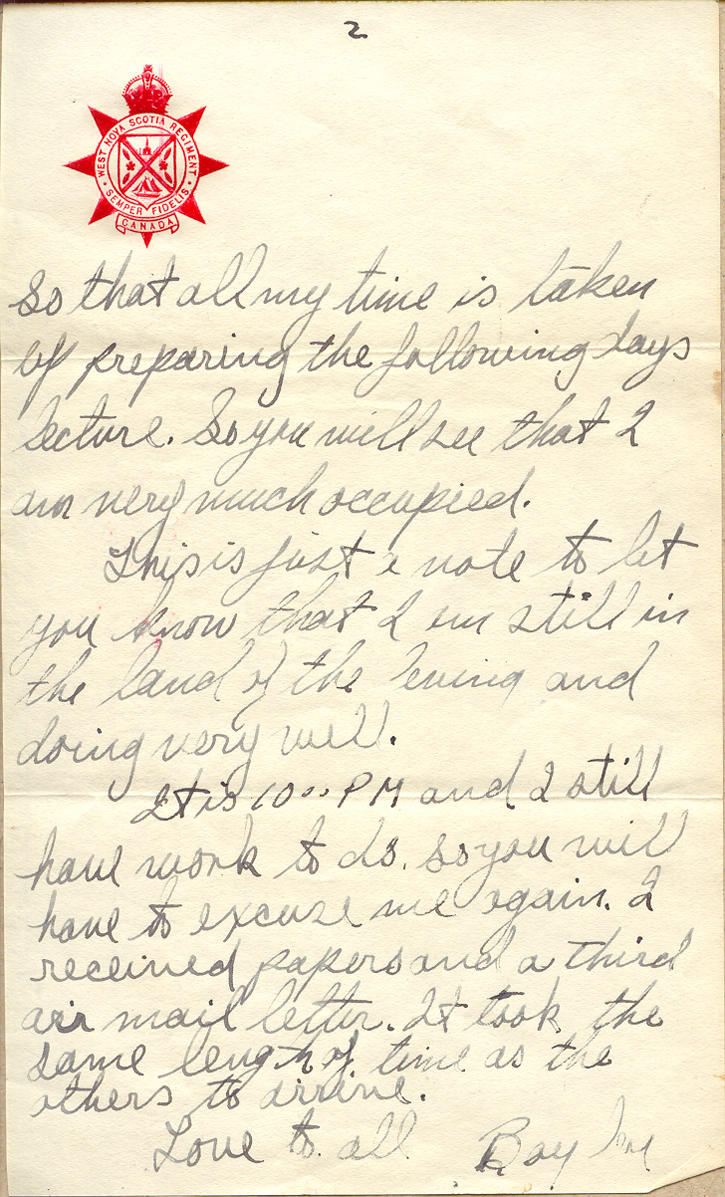 2
WEST NOVA SCOTIA REGIMENT
SEMPER FIDELIS
CANADA
So that all my time is taken
by preparing the following days
lecture. So you will see that I
am very much occupied.
This is just a note to let
you know that I am still in
the land of the living and
doing very well.
It is 10⁰⁰ PM and I still
have work to do. so you will
have to excuse me again. I
received papers and a third
air mail letter. It took the
same length of time as the
others to arrive.
Love to all